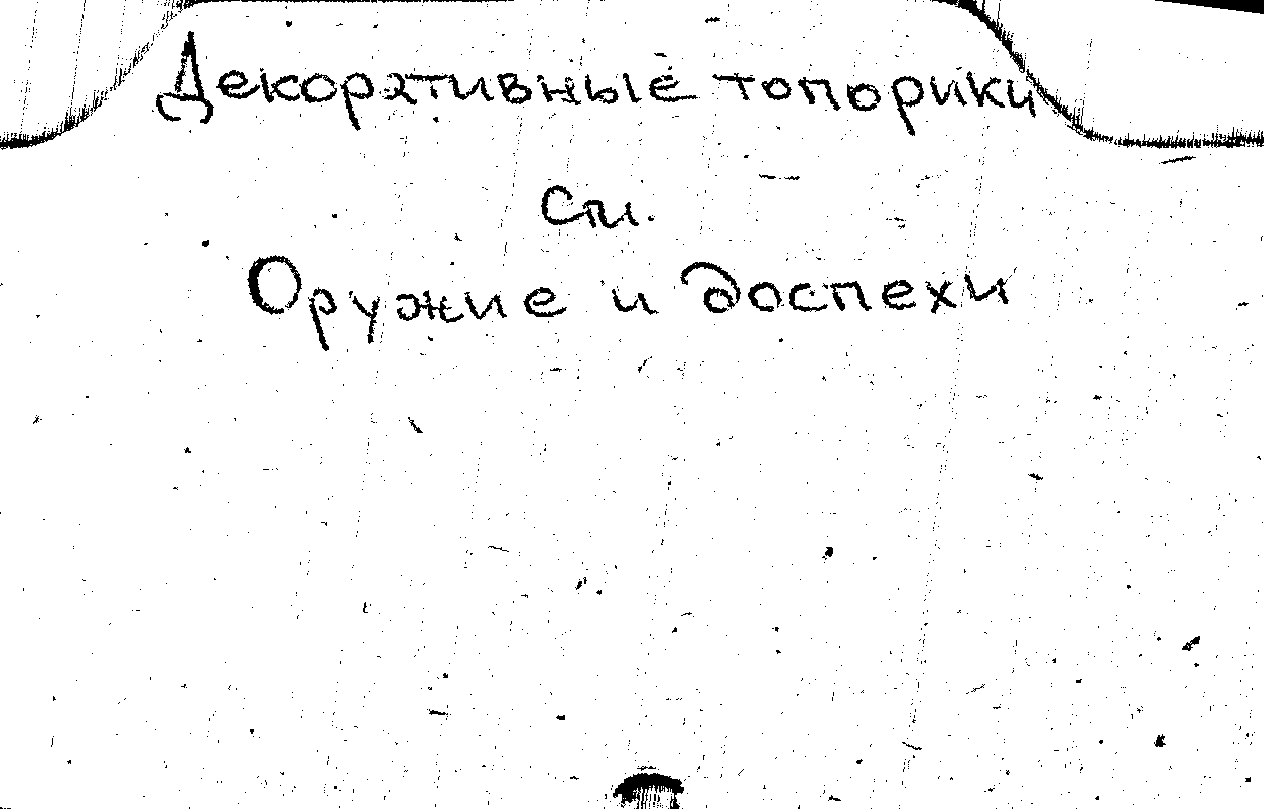 Декоративные топорики
См.
Оружие и доспехи